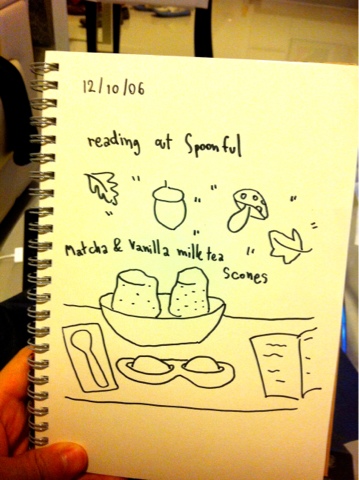 12/10/06
reading at Spoonful
Matcha & Vanilla milk tea
Scones